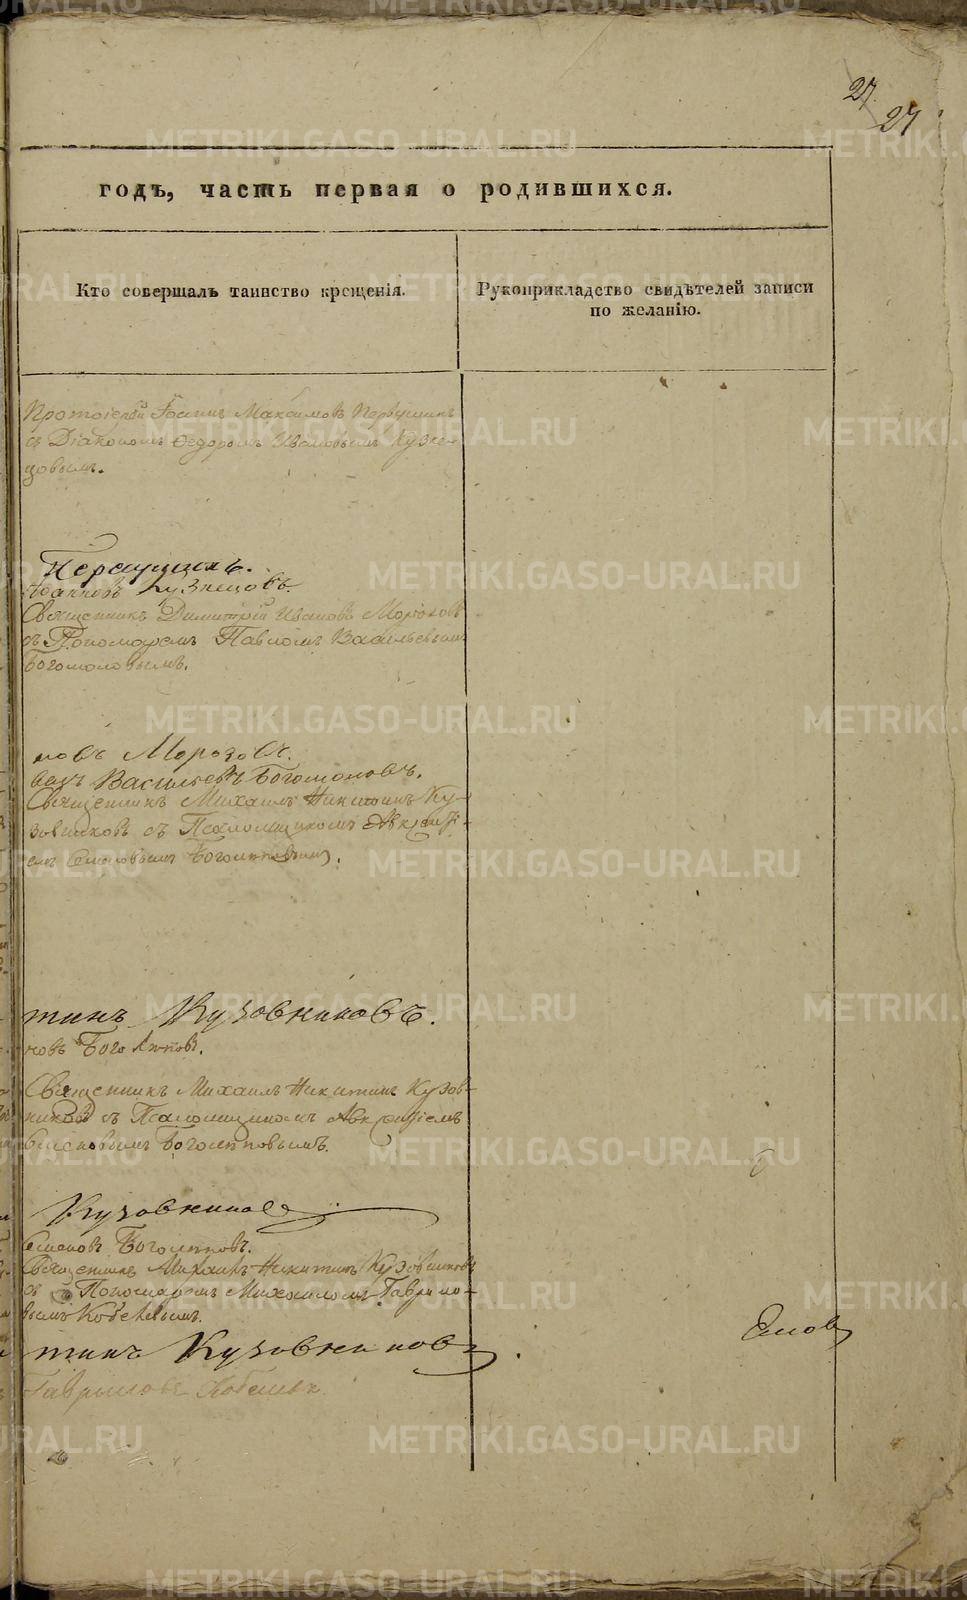 27.
27
годъ, часть первая о родившихся.
Кто совершалъ таинство крещенія.
Рукоприкладство свидѣтелей записи
по желанію.
Протоіерей Іоаннъ Максимовъ Первушинъ
съ Діакономъ Ѳедоромъ Ивановымъ Кузне-
цовымъ.
Первушинъ.
Іоанновъ Кузнецовъ.
Священникъ Димитрій Ивановъ Морозовъ
съ Пономаремъ Павломъ Васильевымъ
Богомоловымъ.
новъ Морозовъ.
Васильевъ Богомоловъ.
Священникъ Михаилъ Никитинъ Ку-
зовниковъ съ Псаломщикомъ Авксенті-
емъ Семеновымъ Боголѣповымъ.
тинъ Кузовниковъ.
новъ Боголѣповъ.
Священникъ Михаилъ Никитинъ Кузов-
никовъ съ Псаломщикомъ Авксентіемъ
Семеновымъ Боголѣповымъ.
Кузовниковъ
Семеновъ Боголѣповъ.
Священникъ Михаилъ Никитинъ Кузовниковъ
съ Пономаремъ Михаиломъ Гаврило-
вымъ
тинъ Кузовниковъ.
Гавриловъ
METRIKI.GASO-URAL.RU